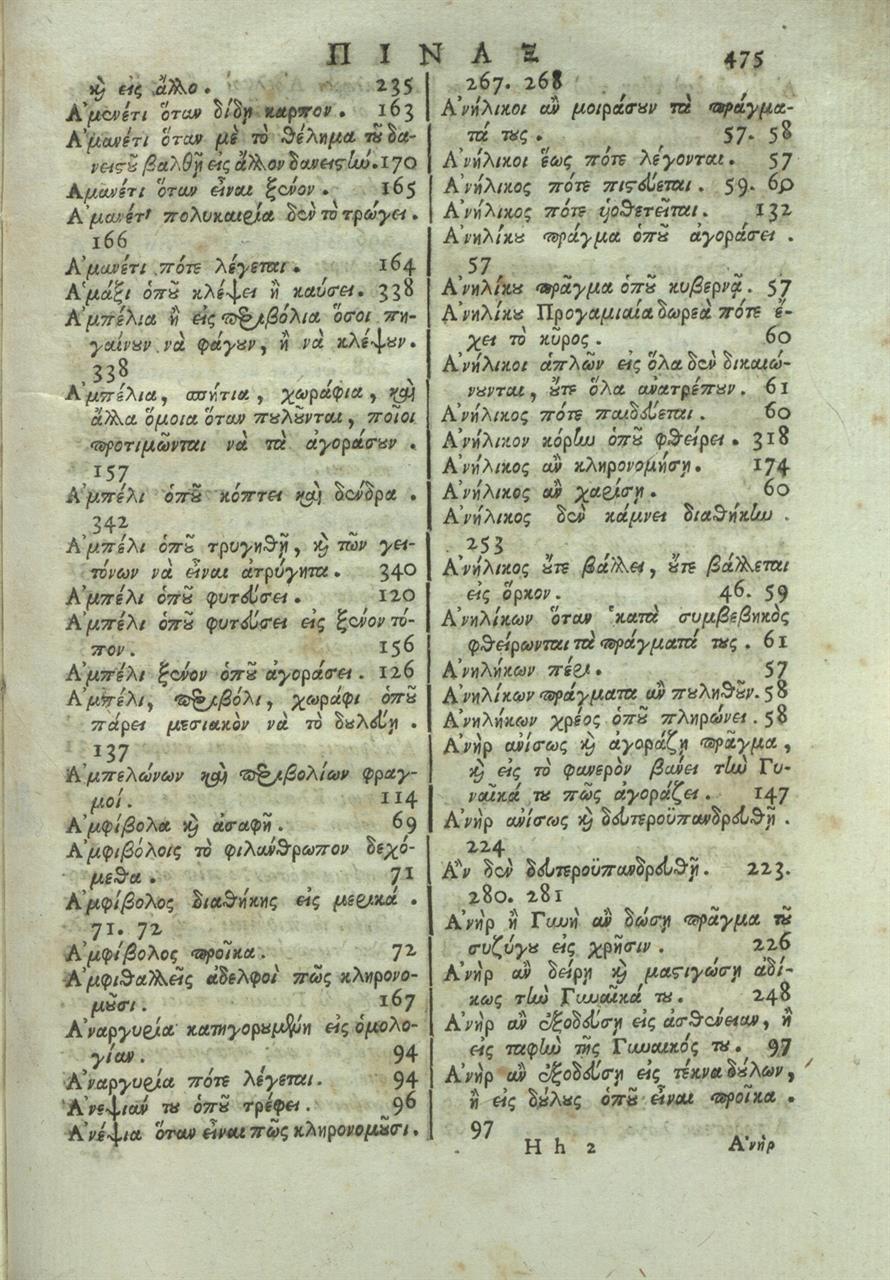 ΠΙΝΑΞ 475
κỳ εἰς ἄλλο. 235
Ἀμανέτι ὅταν δίδῃ καρπον. 163
Ἀμανέτι ὅταν μὲ τὸ θέλημα τοῦ δα-
νειστοῦ βαλθῇ εἰς ἄλλον δανειστὴν. 170
Αμανέτι ὅταν εἶναι ξένον. 165
Ἀμανέτι πολυκαιρία δὲν τὸ τρώγει.
166
Ἀμανέτι πότε λέγεται. 164
Ἁμάξι ὁποῦ κλέψει ἢ καύσει. 338
Ἀμπέλια ἢ εἰς περιβόλια ὅσοι πη-
γαίνουν νὰ φάγουν, ἢ νὰ κλέψουν.
338
Ἀμπέλια, σπήτια, χωράφια, καὶ
ἄλλα ὅμοια ὅταν πουλοῦνται, ποῖοι
προτιμῶνται νὰ τὰ ἀγοράσουν.
157
Ἀμπέλι ὁποῦ κόπτει καὶ δένδρα.
342
Ἀμπέλι ὁποῦ τρυγηθῇ, καὶ τῶν γει-
τόνων νὰ εἶναι ἀτρύγητα. 340
Ἀμπέλι ὁποῦ φυτεύσει. 120
Ἀμπέλι ὁποῦ φυτεύσει εἰς ξένον τό-
πον. 156
Ἀμπέλι ξένον ὁποῦ ἀγοράσει. 126
Ἀμπέλι, περιβόλι, χωράφι ὁποῦ
πάρει μεσιακὸν νὰ τὸ δουλεύῃ.
137
Ἀμπελώνων καὶ περιβολίων φραγ-
μοί. 114
Ἀμφίβολα καὶ ἀσαφῆ. 69
Ἀμφιβόλοις τὸ φιλάνθρωπον δεχό-
μεθα. 71
Ἀμφίβολος διαθήκης εἰς μερικά.
71. 72
Ἀμφίβολος προῖκα. 72
Ἀμφιθαλλεῖς ἀδελφοὶ πῶς κληρονο-
μοῦσι. 167
Ἀναργυρία κατηγορουμένη εἰς ὁμολο-
γίαν. 94
Ἀναργυρία πότε λέγεται. 94
Ἀνεψιάν του ὁποῦ τρέφει. 96
Ἀνέψια ὅταν εἶναι πῶς κληρονομοῦσι.
267. 268
Ἀνήλικοι ἂν μοιράσουν τὰ πράγμα-
τά τους. 57. 58
Ἀνήλικοι ἕως πότε λέγονται. 57
Ἀνήλικος πότε πιστεύεται. 59. 60
Ἀνήλικος πότε ὑοθετεῖται. 132
Ἀνηλίκου πράγμα ὁποῦ ἀγοράσει.
57
Ἀνηλίκου πρᾶγμα ὁποῦ κυβερνᾷ. 57
Ἀνηλίκου Προγαμιαία δωρεὰ πότε ἔ-
χει τὸ κῦρος. 60
Ἀνήλικοι ἁπλῶν εἰς ὅλα δὲν δικαιώ-
νουνται, οὔτε ὅλα ἀνατρέπουν. 61
Ἀνήλικος πότε παιδεύεται. 60
Ἀνήλικον κόρην ὁποῦ φθείρει. 318
Ἀνήλικος ἂν κληρονομήσῃ. 174
Ἀνήλικος ἂν χαρίσῃ. 60
Ἀνήλικος δὲν κάμνει διαθήκην.
253
Ἀνήλικος οὔτε βάλλει, οὔτε βάλλεται
εἰς ὅρκον. 46. 59
Ἀνηλίκων ὅταν κατὰ συμβεβηκὸς
φθείρωνται τὰ πράγματά τους. 61
Ἀνηλήκων πέρι. 57
Ἀνηλίκων πράγματα ἂν πουληθοῦν. 58
Ἀνηλήκων χρέος ὁποῦ πληρώνει. 58
Ἀνὴρ ἀνίσως καὶ ἀγοράζῃ πρᾶγμα,
καὶ εἰς τὸ φανερὸν βάνει τὴν Γυ-
ναῖκά του πῶς ἀγοράζει. 147
Ἀνὴρ ἀνίσως καὶ δευτεροϋπανδρευθῇ.
224
Ἂν δὲν δευτεροϋπανδρευθῇ. 223.
280. 281
Ἀνὴρ ἢ Γυνὴ ἂν δώσῃ πρᾶγμα τοῦ
συζύγου εἰς χρῆσιν. 226
Ἀνὴρ ἂν δείρῃ καὶ μαστιγώσῃ ἀδί-
κως τὴν Γυναῖκά του. 248
Ἀνὴρ ἂν ἐξοδεύσῃ εἰς ἀσθένειαν, ἢ
εἰς ταφὴν τῆς Γυναικός του. 97
Ἀνὴρ ἂν ἐξοδεύσῃ εἰς τέκνα δούλων,
ἢ εἰς δούλους ὁποῦ εἶναι προῖκα.
97
Hh 2 Ἀνὴρ